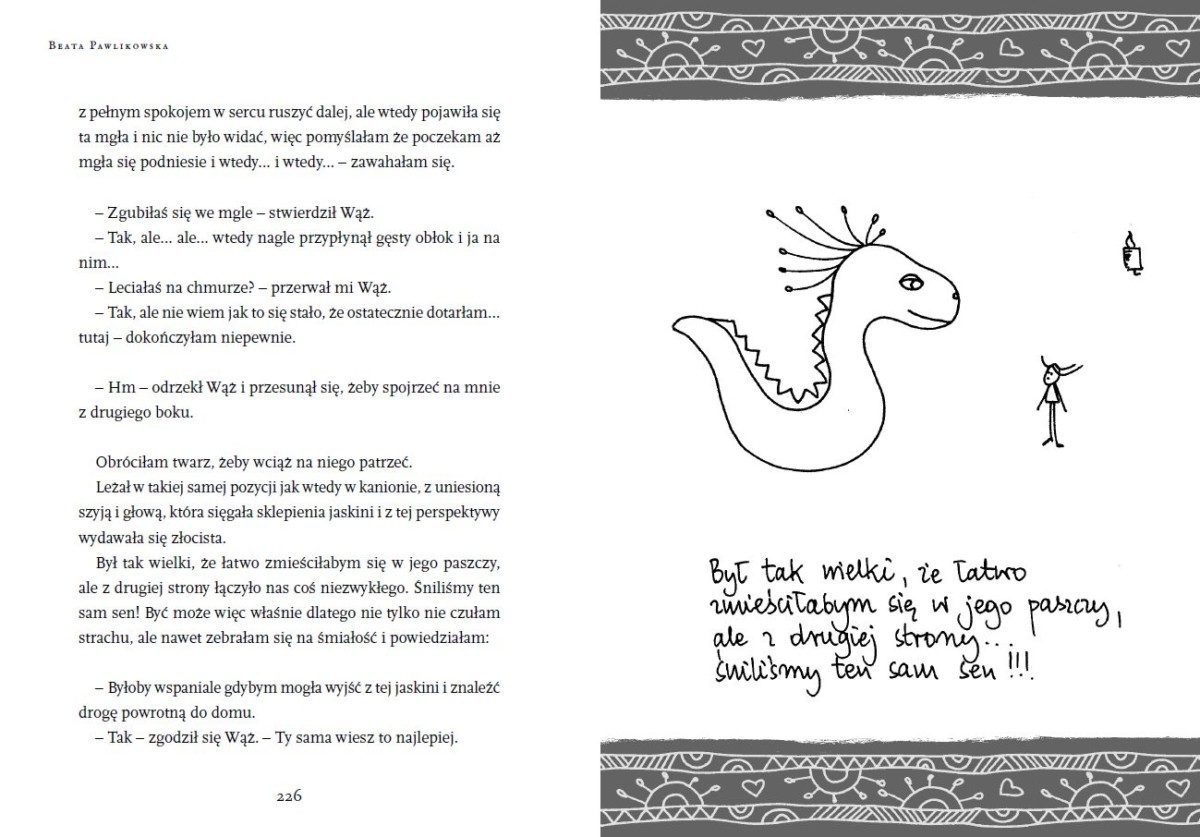 Beata Pawlikowska
z pełnym spokojem w sercu ruszyć dalej, ale wtedy pojawiła się
ta mgła i nic nie było widać, więc pomyślałam że poczekam aż
mgła się podniesie i wtedy... i wtedy... – zawahałam się.
– Zgubiłaś się we mgle – stwierdził Wąż.
– Tak, ale... ale... wtedy nagle przypłynął gęsty obłok i ja na
nim...
– Leciałaś na chmurze? – przerwał mi Wąż.
– Tak, ale nie wiem jak to się stało, że ostatecznie dotarłam...
tutaj – dokończyłam niepewnie.
– Hm – odrzekł Wąż i przesunął się, żeby spojrzeć na mnie
z drugiego boku.
Obróciłam twarz, żeby wciąż na niego patrzeć.
Leżał w takiej samej pozycji jak wtedy w kanionie, z uniesioną
szyją i głową, która sięgała sklepienia jaskini i z tej perspektywy
wydawała się złocista.
Był tak wielki, że łatwo zmieściłabym się w jego paszczy,
ale z drugiej strony łączyło nas coś niezwykłego. Śniliśmy ten
sam sen! Być może więc właśnie dlatego nie tylko nie czułam
strachu, ale nawet zebrałam się na śmiałość i powiedziałam:
– Byłoby wspaniale gdybym mogła wyjść z tej jaskini i znaleźć
drogę powrotną do domu.
– Tak – zgodził się Wąż. – Ty sama wiesz to najlepiej.
226
Był tak wielki, że łatwo
zmieściłabym się w jego paszczy,
ale z drugiej strony...
śniliśmy ten sam sen!!!